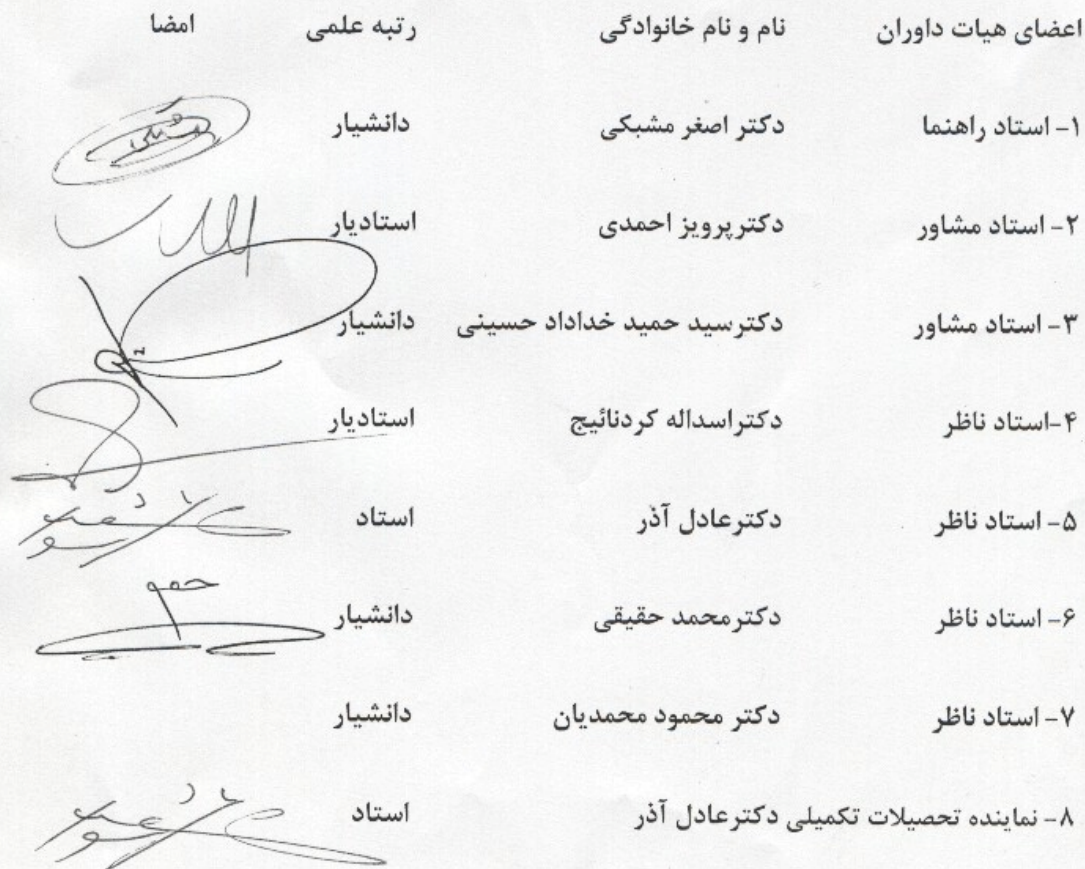 اعضای هیات داوران نام و نام خانوادگی رتبه علمی امضا
۱- استاد راهنما دکتر اصغر مشبکی دانشیار
۲- استاد مشاور دکترپرویز احمدی استادیار
۳- استاد مشاور دکترسید حمید خداداد حسینی دانشیار
۴-استاد ناظر دکتراسداله کردنائیج استادیار
۵- استاد ناظر دکترعادل آذر استاد
۶- استاد ناظر دکترمحمد حقیقی دانشیار
۷- استاد ناظر دکتر محمود محمدیان دانشیار
۸- نماینده تحصیلات تکمیلی دکترعادل آذر استاد